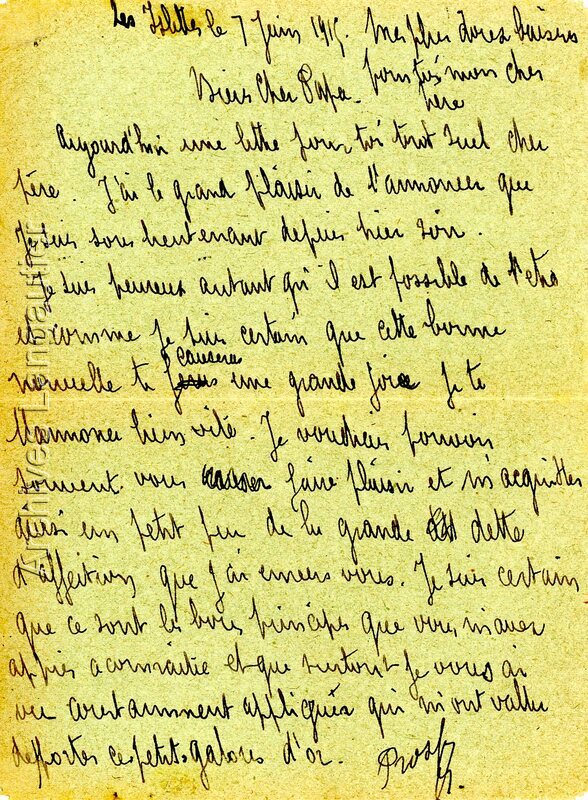 Les Islettes le 7 Juin 1915. Mes plus doux baisers
pour toi mon cher
père
Bien Cher Papa.
Aujourd'hui une lettre pour toi tout seul cher
père. J'ai le grand plaisir de t'annoncer que
Je suis sous lieutenant depuis hier soir.
Je suis heureux autant qu'il est possible de l'etre
et comme Je suis certain que cette bonne
nouvelle te causera une grande joie Je te
l'annonce bien vite. Je voudrais pouvoir
souvent vous faire plaisir et m'acquitter
ainsi un petit peu de la grande dette
d'affection que J'ai envers vous. Je suis certain
que ce sont les bons principes que vous m'avez
appris a connaitre et que surtout Je vous ai
vu constamment appliqués qui m'ont vallu
ces petits galons d'or.
Archives Lombaumer